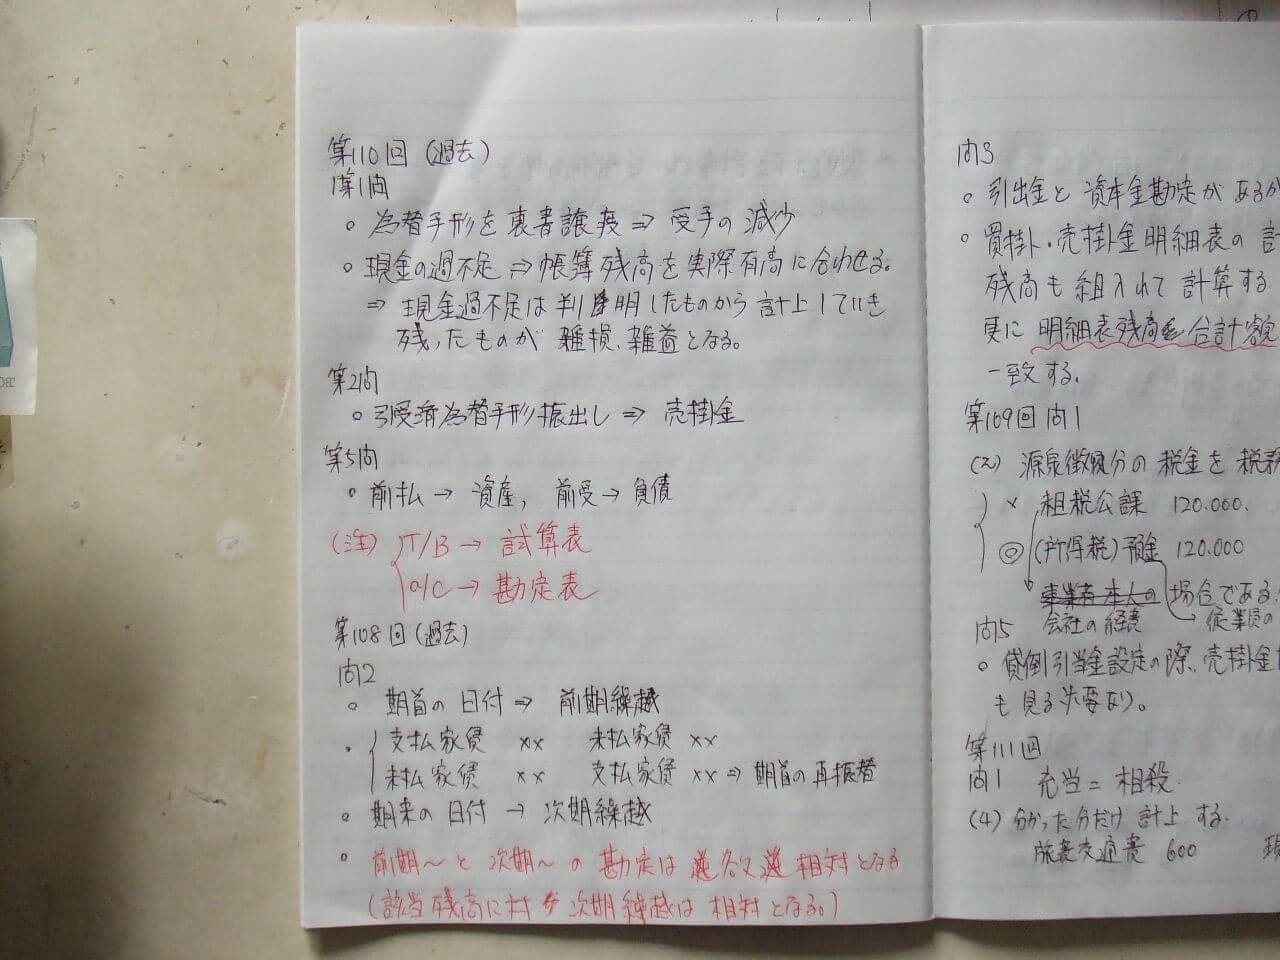 第110回(過去)
第1問
○ 為替手形を裏書譲渡 ⇒ 受手の減少
○ 現金の過不足 ⇒ 帳簿残高を実際有高に合わせる。
⇒ 現金過不足は判明したものから計上していき
残ったものが 雑損、雑益となる。
第2問
○ 引受済為替手形振出し ⇒ 売掛金
第5問
○ 前払 → 資産, 前受 → 負債
(注) T/B → 試算表
a/c → 勘定表
第108回(過去)
問2
○ 期首の日付 ⇒ 前期繰越
○ 支払家賃 ×× 未払家賃 ××
未払家賃 ×× 支払家賃 ×× ⇒ 期首の再振替
○ 期末の日付 → 次期繰越
○ 前期〜と次期〜の勘定は 各々 相対となる
(該当残高に対し 次期繰越は 相対となる。)
問3
○ 引出金と資本金勘定があるか
○ 買掛・売掛金明細表の計
残高も組入れて計算する
更に 明細表残高と合計額
一致する.
第109回 問1
(2) 源泉徴収分の税金を税務
× 租税公課 120.000.
◎ (所得税)預金 120.000
事業者本人の 場合である.
会社の経費 → 従業員の
問5
○ 貸倒引当金設定の際、売掛金
も見る必要あり。
第111回
問1 充当 = 相殺.
(4) 分かった分だけ計上する.
旅費交通費 600 現